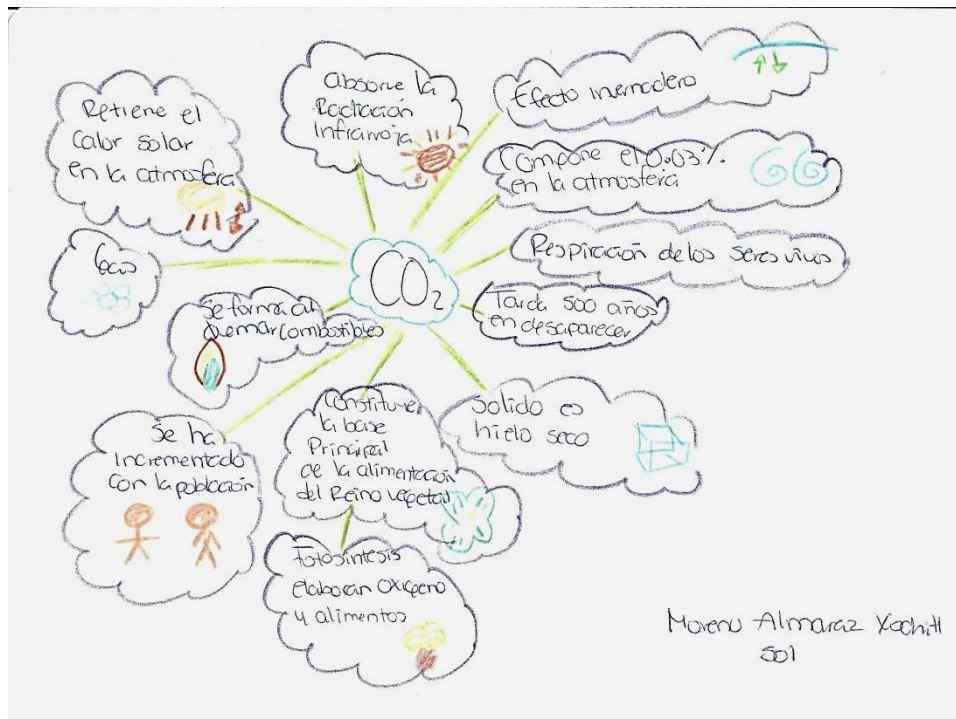 CO2
Retiene el
Calor solar
en la atmosfera
absorve la
Radiación
Infrarroja
Efecto invernadero
Compone el 0.03%
en la atmosfera
Respiración de los seres vivos
Tarda 500 años
en desaparecer
Solido es
hielo seco
Constituye
la base
Principal
de la alimentación
del Reino vegetal
Fotosintesis
elaboran oxigeno
y alimentos
Se ha
incrementado
con la población
Se forma al
quemar combustibles
Gas
Moreno Almaraz Xochitl
501